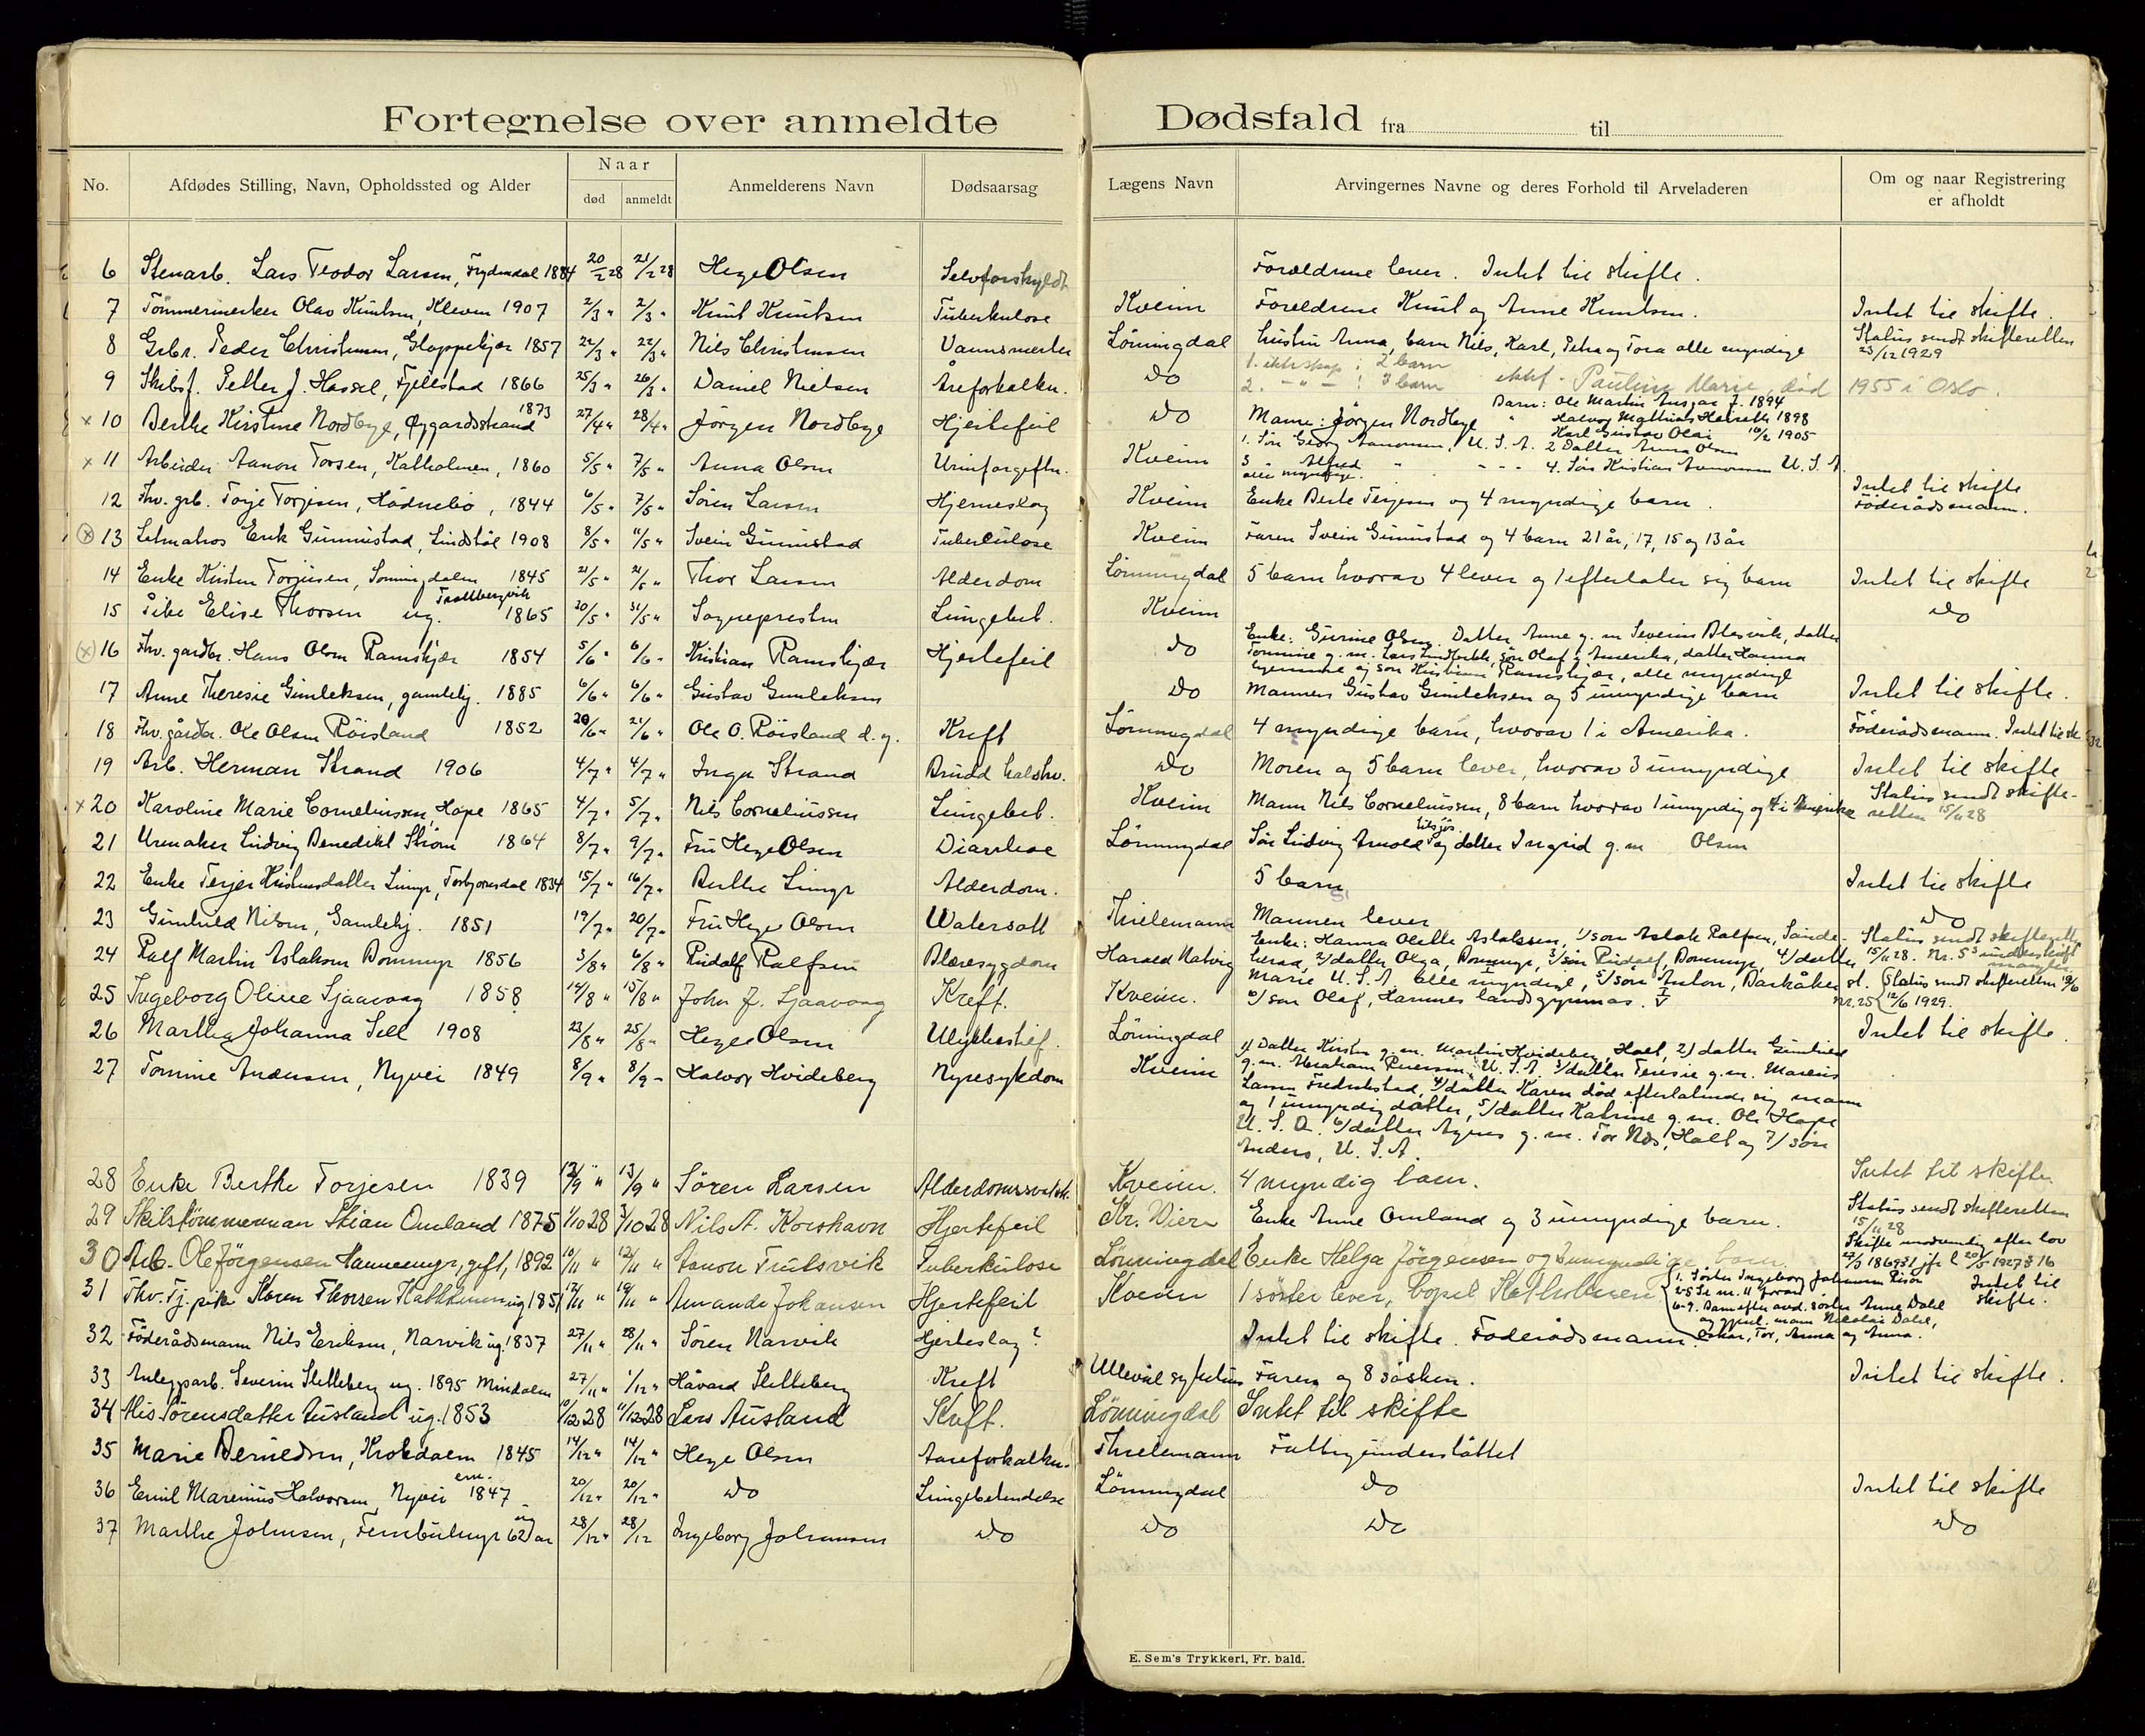 Fortegnelse over anmeldte Dødsfald fra til
No. Afdødes Stilling, Navn, Opholdssted og Alder Naar død anmeldt Anmelderens Navn Dødsaarsag Lægens Navn Arvingernes Navne og deres Forhold til Arveladeren Om og naar Registrering er afholdt
6 Stenarb. Lars Teodor Larsen, 1884 20/2 28 21/2 28 Hege Olsen Selvforskyldt Forældrene lever. Intet til skifte.
7 Tømmermerker Olav Knutsen, Kleven 1907 2/3 " 2/3 " Knut Knutsen Tuberkulose Kveim Foreldrene Knut og Anne Knutsen. Intet til skifte.
8 Grbr. Peder Christensen, Gloppekjær 1857 22/3 " 22/3 " Nils Christensen Vannsmerter Lønningdal hustru Anna, barn Nils, Karl, Petra og Tora alle myndige Status sendt skifteretten
23/12 1929
9 Skibsf. Petter J. Hassel, Fjellstad 1866 25/3 " 26/3 " Daniel Nielsen Åreforkalkn. Do 1. ekteskap: 2 barn
2. - " - : 3 barn ektef. Pauline Marie, død 1955 i Oslo.
x 10 Berthe Kirstine Nordbye, Øygardsstrand 1873 27/4 " 28/4 " Jørgen Nordbye Hjertefeil Do Mann: Jørgen Nordbye Barn: Ole Martin Ansgar f. 1894
Halvor Mathias 1898
Karl Gustav Olai 16/2 1905
x 11 Arbeider Aanon Torsen, Kalholmen, 1860 5/5 " 7/5 " Anna Olsen Urinforgiftn. Kveim 1. Søn Georg Aanonsen, U. S. A. 2 Datter Anna Olsen
3 " Alfred " - - - 4. Søn Kristian Aanonsen U. S. A.
alle myndige.
12 Fhv. grb. Torje Torjesen, Hødnebø, 1844 6/5 " 7/5 " Søren Larsen Hjerneslag Kveim Enke Berte Terjesen og 4 myndige barn. Intet til skifte
Föderådsmann.
x 13 Letmatros Erik Gunnustad, Lindstøl 1908 8/5 " 11/5 " Svein Gunnustad Tuberculose Kveim Faren Svein Gunnustad og 4 barn 21 år, 17, 15 og 13 år
14 Enke Kirsten Torjusen, Lønningdalen 1845 21/5 " 21/5 " Thor Larsen Alderdom Lønningdal 5 barn hvorav 4 lever og 1 efterlater sig barn Intet til skifte
15 Pike Elise Thorsen ug. Trollbergvik 1865 20/5 " 31/5 " Sogneprestn Lungebet. Kveim Do
x 16 Fhv. gardbr. Hans Olsen Ramskjær 1854 5/6 " 6/6 " Kristian Ramskjær Hjertefeil Do Enke: Gurine Olsen. Datter Anne g. m Severin Blesvik, datter
Tomine g. m. Lars Lindtveit, søn Olaf i Amerika, datter Hanna
hjemme og søn Kristian Ramskjær, alle myndige
17 Anne Theresie Gunleksen, gamlehj. 1885 6/6 " 6/6 " Gustav Gunleksen Do Mannen Gustav Gunleksen og 5 umyndige barn Intet til skifte.
18 Fhv. gårdbr. Ole Olsen Röisland 1852 20/6 " 21/6 " Ole O. Röisland d. y. Kreft Lønningdal 4 myndige barn, hvorav 1 i Amerika. Föderådsmann. Intet til sk
19 Arb. Herman Strand 1906 4/7 " 4/7 " Inga Strand Brudd halshv. Do Moren og 5 barn lever, hvorav 3 umyndige Intet til skifte
x 20 Karoline Marie Corneliussen, Hope 1865 4/7 " 5/7 " Nils Corneliussen Lungebet. Kveim Mann Nils Corneliussen, 8 barn hvorav 1 umyndig og 4 i Amerika Status sendt skifte-
retten 15/11 28
21 Urmaker Ludvig Benedikt Strøm 1864 8/7 " 9/7 " Fru Hege Olsen Diarrhoe Lønningdal Søn Ludvig Arnold tilsjøs og datter Ingrid g. m Olsen
22 Enke Terjer Kristensdatter Lunge, Torbjørnsdal 1834 15/7 " 16/7 " Berthe Lunge Alderdom. 5 barn Intet til skifte
23 Gunhild Nilsen, Gamlehj. 1851 19/7 " 20/7 " Fru Hege Olsen Watersott Thielemann Mannen lever Do
24 Ralf Martin Aslaksen Dommyr 1856 3/8 " 6/8 " Rudolf Ralfsen Blæresygdom Harald Natvig Enke: Hanna Olette Aslaksen, 1/ søn Aslak Ralfsen, Sande-
herad, 2/ datter Olga, Dommyr, 3/ søn Rudolf, Dommyr, 4/ datter
Marie U. S. A alle myndige, 5/ søn Anton, Barkåker st.
6/ søn Olaf, Hamnes landsgymnas. Status sendt skifteretten
15/11 28. Nr. 5 underskrift
mangler.
25 Ingeborg Oline Sjaavaag 1858 14/8 " 15/8 " John J. Sjaavaag Kreft. Kveim. nr. 25 Status sendt skifteretten
12/6 1929.
26 Martha Johanna Sell 1908 23/8 " 25/8 " Hege Olsen Ulykkestilf. Lønningdal Intet til skifte.
27 Tomine Andersen, Nyvei 1849 8/9 " 8/9 - Halvor Hvideberg Nyresykdom Kveim 1/ Datter Kirsten g. m. Martin Hvideberg, Holt, 2/ datter Gunhild
g. m. Abraham U. S. A 3/ datter Teresie g. m. Marius
Larsen Fredrikstad, 4/ datter Karen død efterlatende sig mann
og 1 umyndig datter, 5/ datter Katrine g. m. Ole Hope
U. S. A. 6/ datter Agnes g. m. Tor Næs, Holt og 7/ søn
Anders, U. S. A.
28 Enke Berthe Torjesen 1839 12/9 " 13/9 " Søren Larsen Alderdomssvakh. Kveim. 4 myndig barn. Intet til skifte
29 Skibstømmerman Stian Omland 1875 1/10 28 3/10 28 Nils A. Korshavn Hjertefeil Kr. Vier Enke Anne Omland og 3 umyndige barn. Status sendt skifteretten
15/11 28
30 Arb. Ole Jørgensen Hannemyr, gift, 1892 10/11 " 12/11 " Aanon Trulsvik Tuberkulose Lønningdal Enke Helga Jørgensen og umyndige barn Skifte nødvendig efter lov
27/3 1869 § 1 jfr l 20/5 1927 § 16
31 Fhv. Tj. pike Karen Thorsen Kalholmen ug 1851 17/11 " 19/11 " Amanda Johansen Hjertefeil Kveim 1 søster lever, bopel Kalholmen 1. Søster Ingeborg Johansen Risør
6-9. Barn efter avd. søster Anne Dahl
og gjenl. mann Nikolai Dahl,
Oskar, Tor, Anna og Anna. Intet til
skifte.
32 Föderådsmann Nils Eriksen, Narvik ug. 1837 27/11 " 28/11 " Søren Narvik Hjerteslag? Intet til skifte. Föderådsmann.
33 Anleggsarb. Severin Sletteberg ug. 1895 Mindalen 27/11 " 1/12 " Håvard Sletteberg Kreft Ullevål sykehus Faren og 8 søsken. Intet til skifte.
34 Alis Sörensdatter Ausland ug. 1853 10/12 28 11/12 28 Lars Ausland Kreft. Lønningdal Intet til skifte
35 Marie Berntsen, Krokdalen 1845 14/12 " 14/12 " Hege Olsen Aareforkalkn. Thielemann Fattigunderstøttet
36 Emil Marenius Halvorsen, Nyvei em. 1847 20/12 " 20/12 " Do Lungebetendelse Lønningdal Do Intet til skifte
37 Marthe Johnsen, Fembultmyr ug 62 år 28/12 " 28/12 Ingeborg Johansen Do Do Do Do
E. Sem's Trykkeri, Fr. hald.